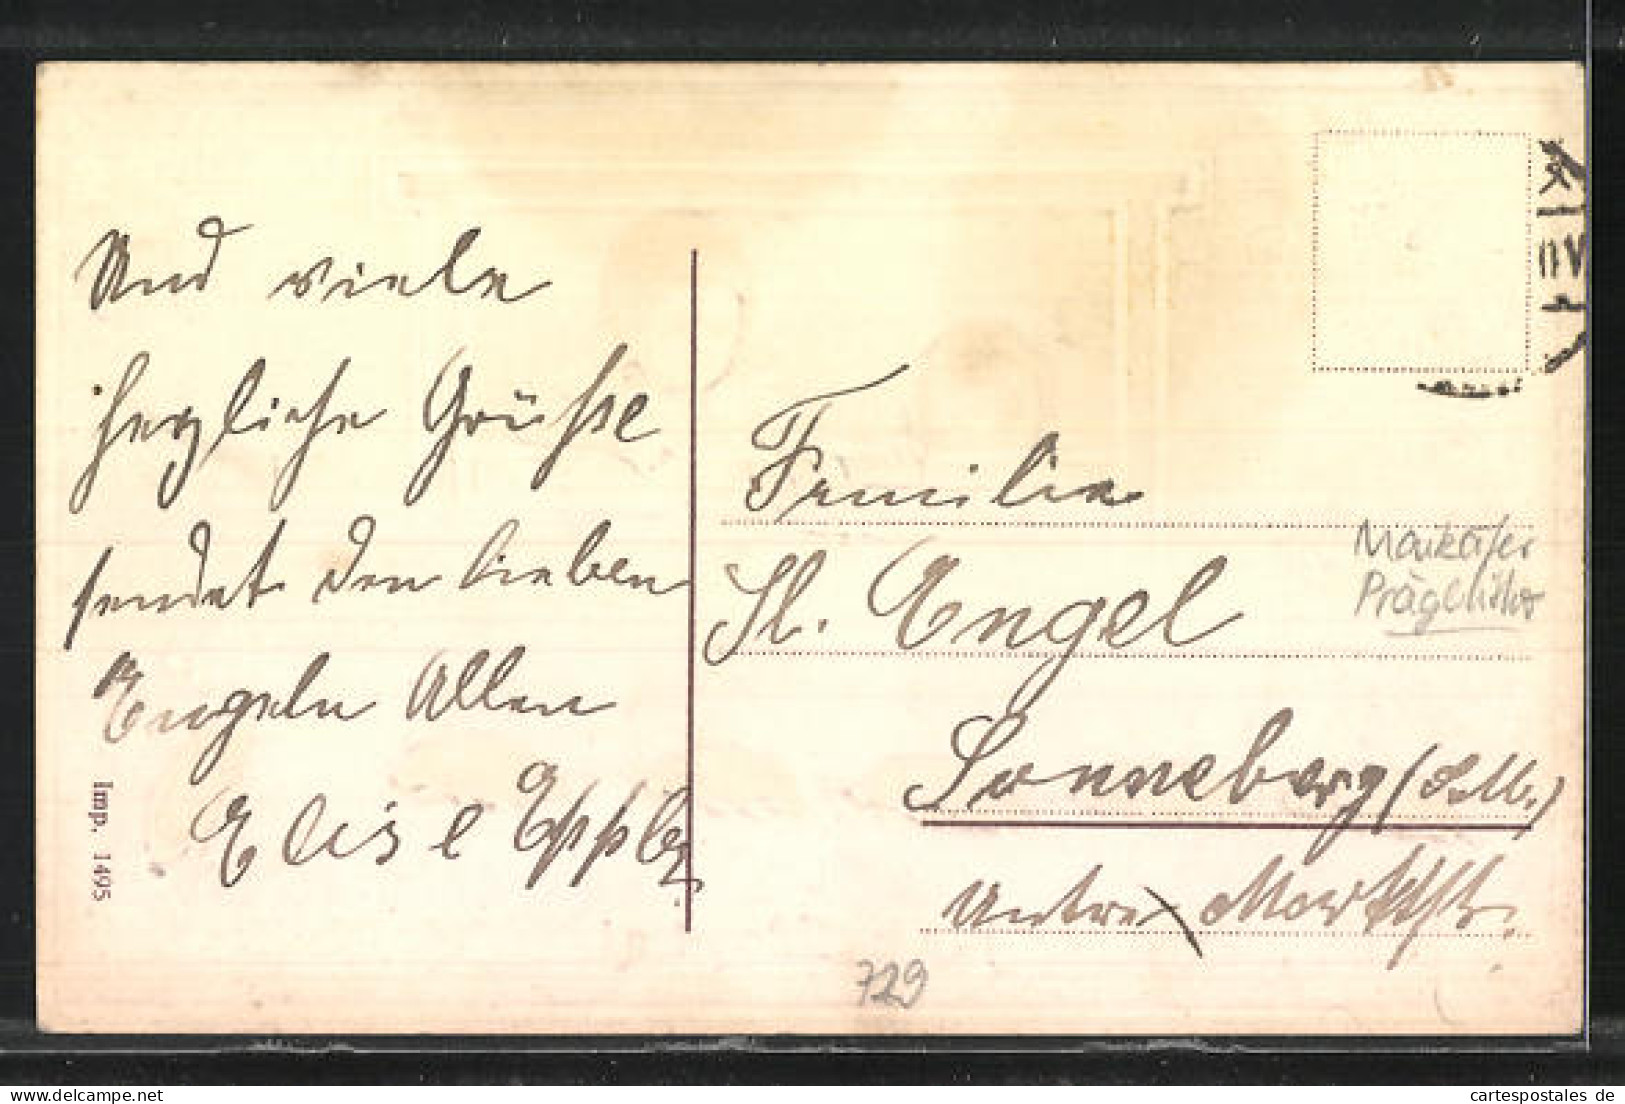 Und viele
herzliche Grüße
sendet den lieben
Engeln Allen
Elise Eppler
Imp. 1495
Familie
Fl. Engel
Sonneberg (S.M.)
Untre Marktstr.
Maikäfer
Präglitho
729
cartespostales de